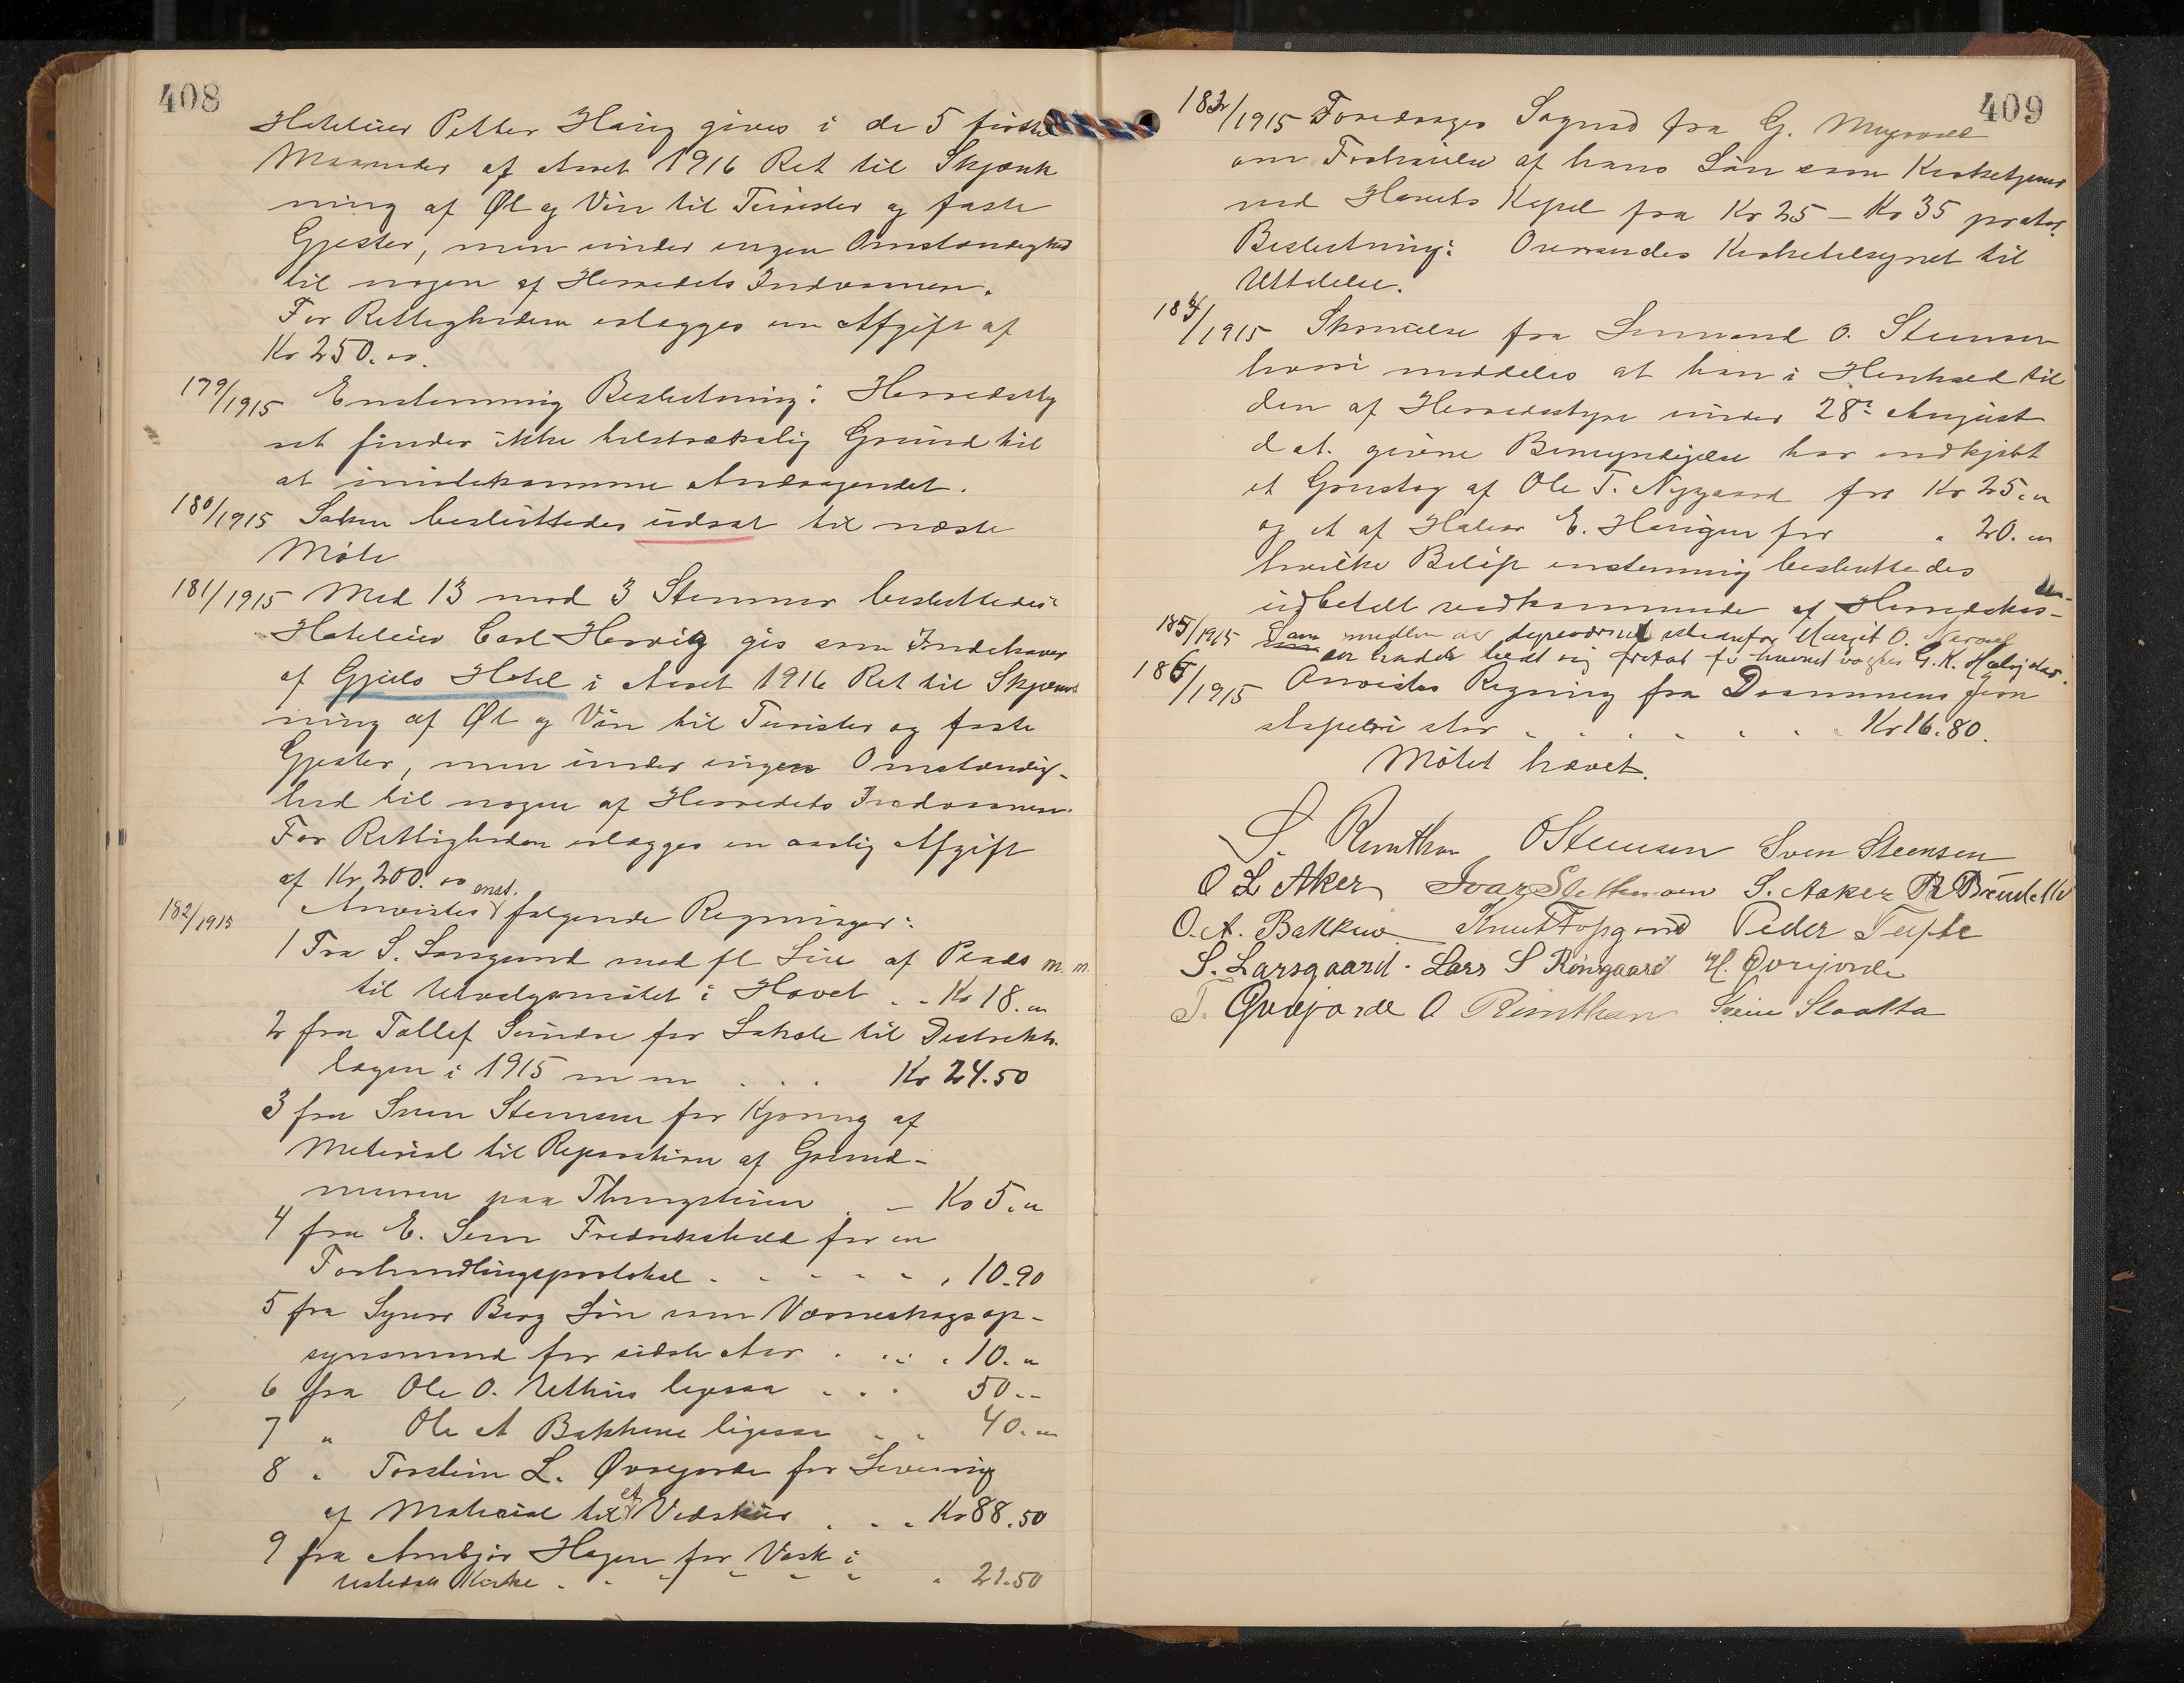 408
Hoteleier Petter Haug gives i de 5 første
Maaneder af Aaret 1916 Ret til Skjænk
ning af Øl og Vin til Turister og faste
Gjester, men under ingen Omstændighed
til nogen af Herredets Indvaanere.
For Rettigheden erlægges en Afgift af
Kr 250.00.
179/1915 Enstemmig Beslutning: Herredsty
ret finder ikke tilstrækkelig Grund til
at imøtekomme Andragendet.
180/1915 Saken besluttedes udsat til næste
Møte
181/1915 Med 13 mod 3 Stemmer besluttedes:
Hoteleier Carl Herwig gis som Indehaver
af Gjeilo Hotel i Aaret 1916 Ret til Skjænk
ning af Øl og Vin til Turister og faste
Gjester, men under ingen Omstændig-
hed til nogen af Herredets Indvaanere.
For Rettigheden erlægges en aarlig Afgift
af Kr 200.00
182/1915 Anvistes enst. følgende Regninger:
1 Fra S. Larsgaard med fl Leie af Plads m.m.
til Utvalgsmøtet i Hovet . . Kr 18.00
2 fra Tollef Sundre for Lokale til Distrikts-
lægen i 1915 m m . . . Kr 24.50
3 fra Sven Steensen for Kjøring af
Material til Reparation af Grund-
muren paa Thingstuen . - Kr 5.00
4 fra E. Sem Fredrikshald for en
Forhandlingsprotokol . . . . . . 10.90
5 fra Syver Berg Løn som Værneskogsop-
synsmand for sidste Aar . . . . 10.00
6 fra Ole O. Uthus ligesaa . . . 50.-
7 " Ole A Bakkene ligesaa . . 40.00
8 " Torstein L. Øvrejorde for Levering
af Material til et Vedskur . . . Kr 88.50
9 fra Ambjør Hagen for Vask i
Ustedal Kirke . . . . . . 21.50
409
183/1915 Foredrages Søgnad fra G. Myrvold
om Forhøielse af hans Løn som Kirketjener
ved Hovets Kapel fra Kr 25 - Kr 35 pr aar.
Beslutning: Oversendes Kirketilsynet til
Uttalelse.
184/1915 Skrivelse fra Lensmand O. Steensen
hvori meddeles at han i Henhold til
den af Herredsstyre under 28de August
d. a. givne Bemyndigelse har indkjøbt
et Grustag af Ole T. Nygaard for Kr 25.00
og et af Halvor E. Haugen for " 20.00
hvilke Beløp enstemmig besluttedes
udbetalt vedkommende af Herredskas-
sen.
185/1915 Som medlem av istedenfor Margit O.
som hadde bedt sig fritat for hvervet valgtes G. K.
186/1915 Anvistes Regning fra Drammens Jern
støperi stor . . . . . . . Kr 16.80.
Møtet hævet.
S. Rimthun O Steensen Sven Steensen
O L Aker Ivar Slettemoen S. Aaker
O. A. Bakkene Knut Fossgard Peder Tufte
S. Larsgaard. Lars S Røngaard H. Øvrejorde
T. Øvrejorde O Rimthun Svein Slaatta